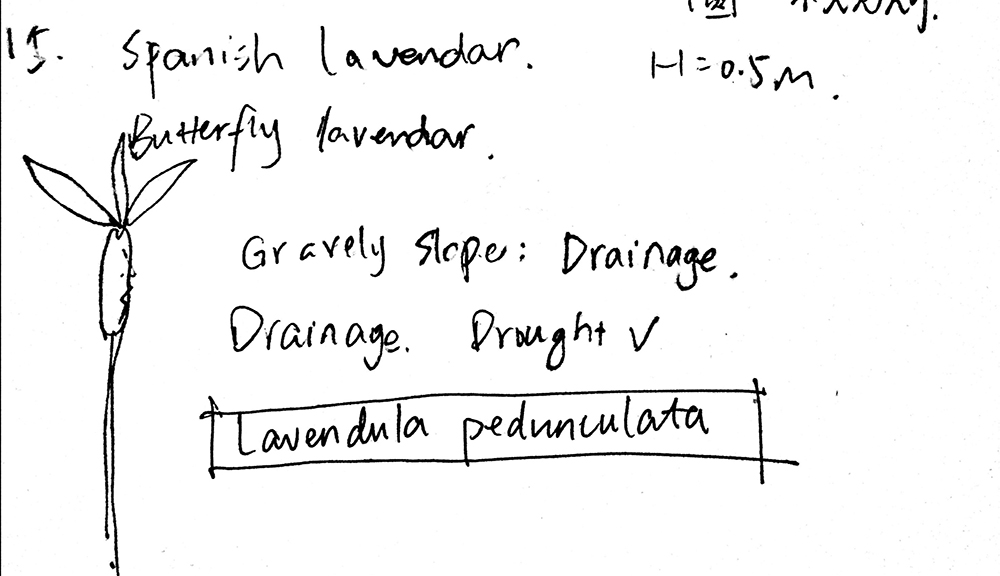 15. Spanish lavendar.
H=0.5m.
Butterfly lavendar.
Gravely slope: Drainage.
Drainage. Drought ✓
Lavendula pedunculata